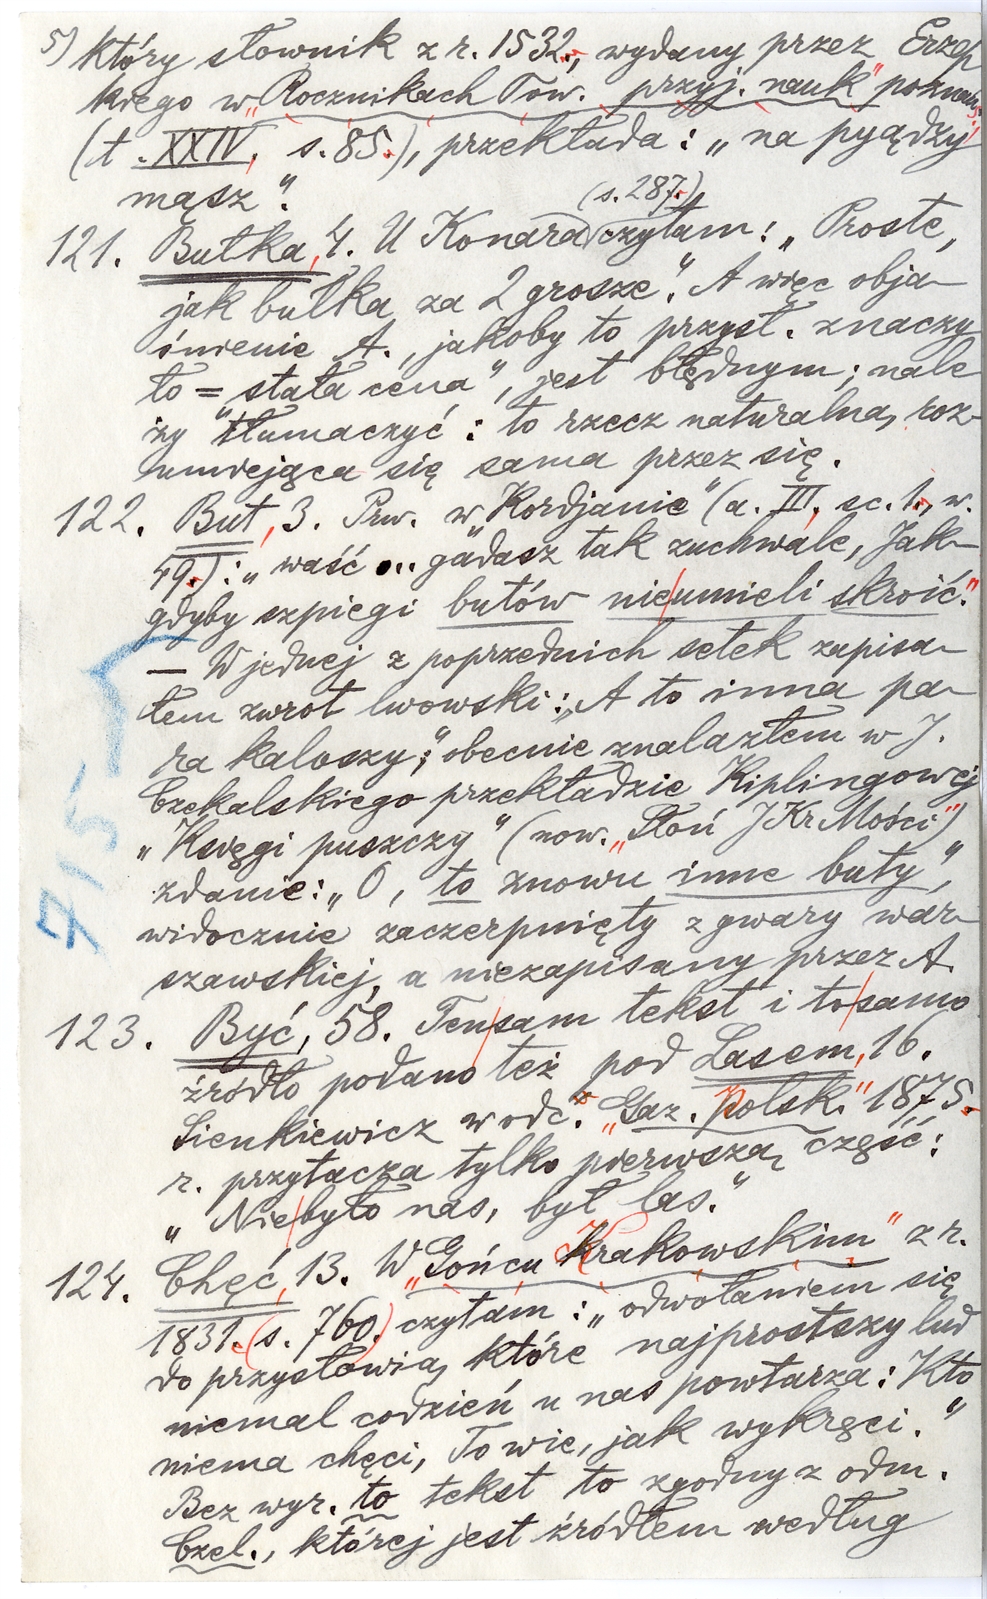 5) który słownik z r. 1532., wydany przez Erzep
kiego w „Rocznikach Tow. przyj. nauk" poznań.
(t. XXIV, s. 85.), przekłada: „na pyądzy
mąsz".
(s. 287.)
121. Bułka, 4. U Konara czytam: „Proste,
jak bułka za 2 grosze". A więc obja-
śnienie A., jakoby to przysł. znaczy
ło = stała cena", jest błędnym; nale
ży tłumaczyć: to rzecz naturalna, roz-
umiejąca się sama przez się.
122. But, 3. Prw. w „Kordjanie" (a. III, sc. 1., w.
49.): „waść ... gadasz tak zuchwale, Jak-
gdyby szpiegi butów nie umieli skroić."
— W jednej z poprzednich setek zapisa-
łem zwrot lwowski: „A to inna pa-
ra kaloszy"; obecnie znalazłem w J.
Czekalskiego przekładzie Kiplingowej
„Księgi puszczy" (now. „Słoń JKrMości")
zdanie: „O, to znowu inne buty",
widocznie zaczerpnięty z gwary war-
szawskiej, a niezapisany przez A.
123. Być, 58. Ten sam tekst i to samo
źródło podano też pod Lasem, 16.
Sienkiewicz w odc. „Gaz. Polsk." 1875.
r. przytacza tylko pierwszą część:
„Nie było nas, był las."
124. Chęć, 13. W „Gońcu Krakowskim" z r.
1831. (s. 760.) czytam: „odwołaniem się
do przysłowia, które najprostszy lud
niemal codzień u nas powtarza: Kto
niema chęci, To wie, jak wykręci."
Bez wyr. to tekst to zgodny z odm.
Czel., której jest źródłem według
715